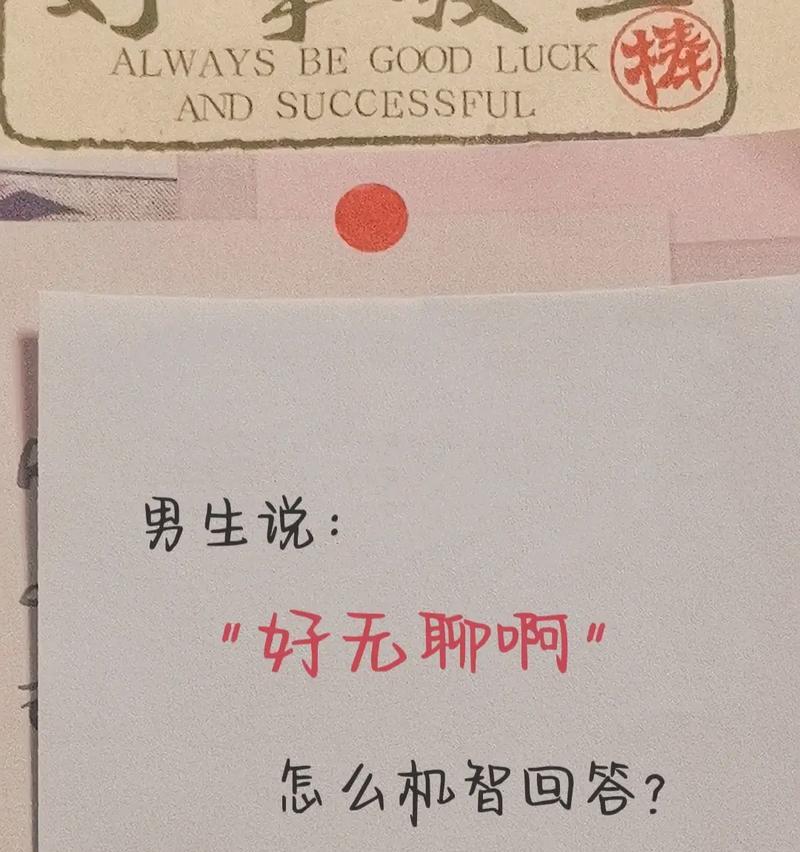 ALWAYS BE GOOD LUCK
AND SUCCESSFUL
棒
男生说：
"好无聊啊"
怎么机智回答？